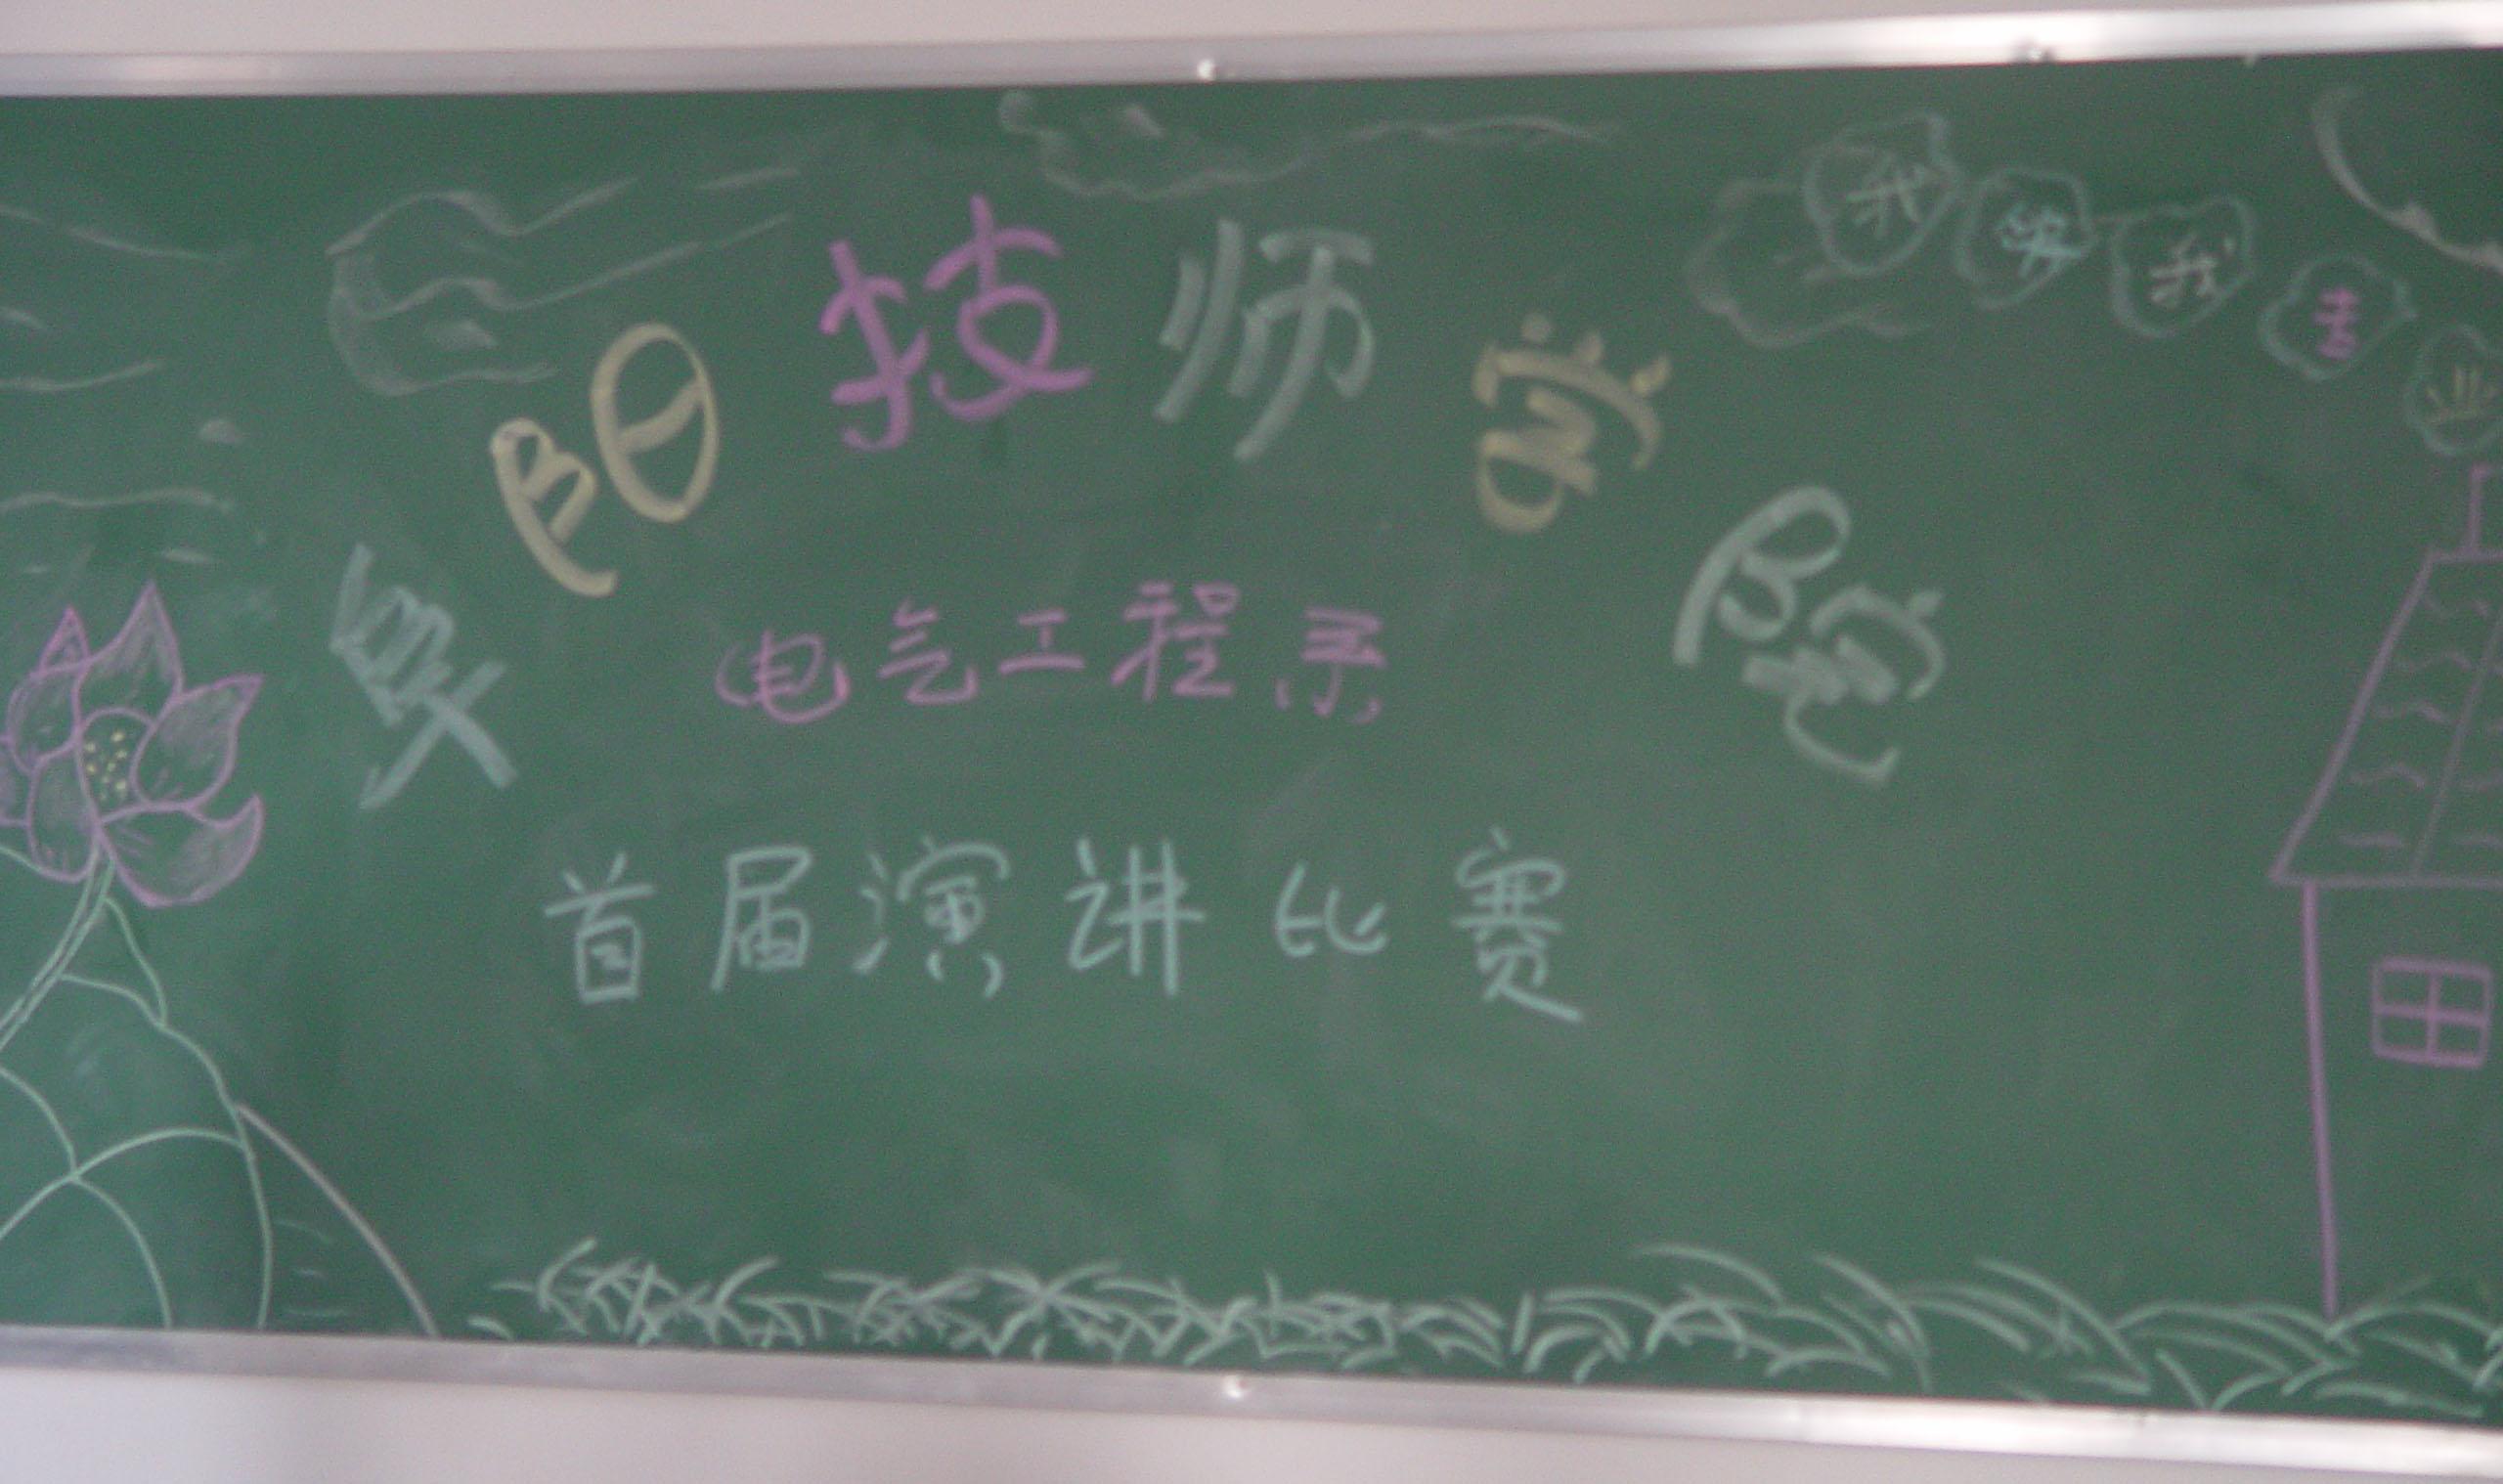 阜阳技师学院
电气工程系
首届演讲比赛
我 我